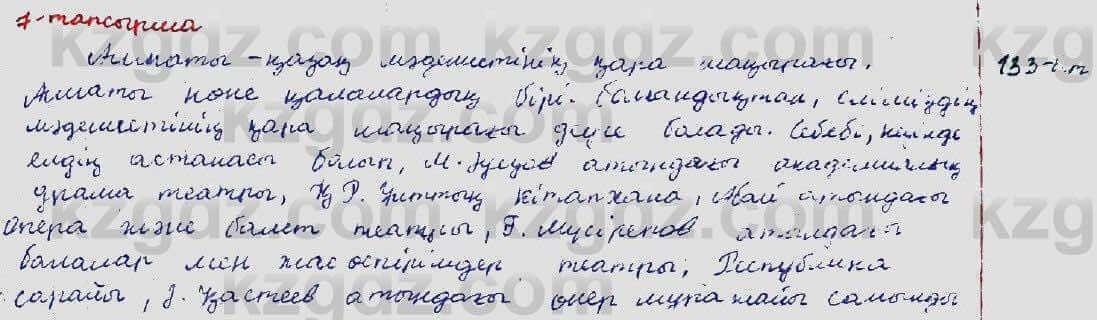 7-тапсырма
Алматы - қазақ мәдениетінің қара шаңырағы.
133-б. т
Алматы көне қалалардың бірі. Сондықтан, еліміздің
мәдениетінің қара шаңырағы деуге болады. Себебі, кезінде
елдің астанасы болып, М. Әуезов атындағы академиялық
драма театры, ҚР. Ұлттық кітапхана, Абай атындағы
опера және балет театры, Ғ. Мүсірепов атындағы
балалар мен жасөспірімдер театры, Республика
сарайы, Ә. Қастеев атындағы өнер мұражайы салынды
kzgdz.com